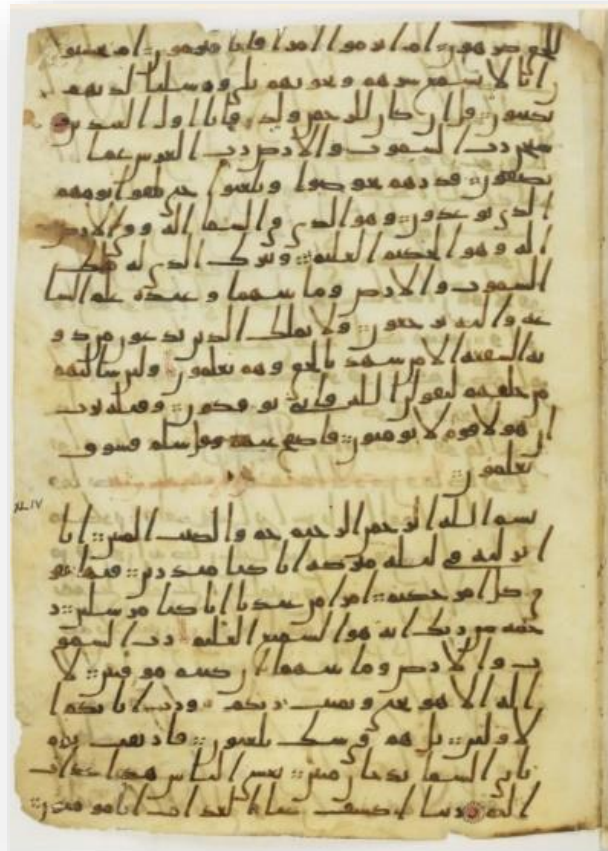 للحق كرهون :: ام ابرموا امرا فانا مبرمون :: ام يحسبو
ن انا لا نسمع سرهم ونجويهم بلى ورسلنا لديهم
يكتبون :: قل ان كان للرحمن ولد فانا اول العبدين
سبحن رب السموت والارض رب العرش عما
يصفون :: فذرهم يخوضوا ويلعبوا حتى يلقوا يومهم
الذي يوعدون :: وهو الذي في السما اله وفي الارض
اله وهو الحكيم العليم :: وتبرك الذي له ملك
السموت والارض وما بينهما وعنده علم السا
عة واليه ترجعون :: ولا يملك الذين يدعون من دو
نه الشفعة الا من شهد بالحق وهم يعلمون ولين سالتهم
من خلقهم ليقولن الله فانى يوفكون :: وقيله يرب
ان هولا قوم لا يومنون :: فاصفح عنهم وقل سلم فسوف
تعلمون ::
XLIV
بسم الله الرحمن الرحيم حم والكتب المبين :: انا
انزلنه في ليلة مبركة انا كنا منذرين :: فيها يفر
ق كل امر حكيم :: امرا من عندنا انا كنا مرسلين :: ر
حمة من ربك انه هو السميع العليم رب السمو
ت والارض وما بينهما ان كنتم موقنين :: لا
اله الا هو يحي ويميت ربكم ورب ابايكم ا
لاولين :: بل هم في شك يلعبون :: فارتقب يوم
تاتي السما بدخان مبين :: يغشى الناس هذا عذاب
اليم ربنا اكشف عنا العذاب انا مومنون ::